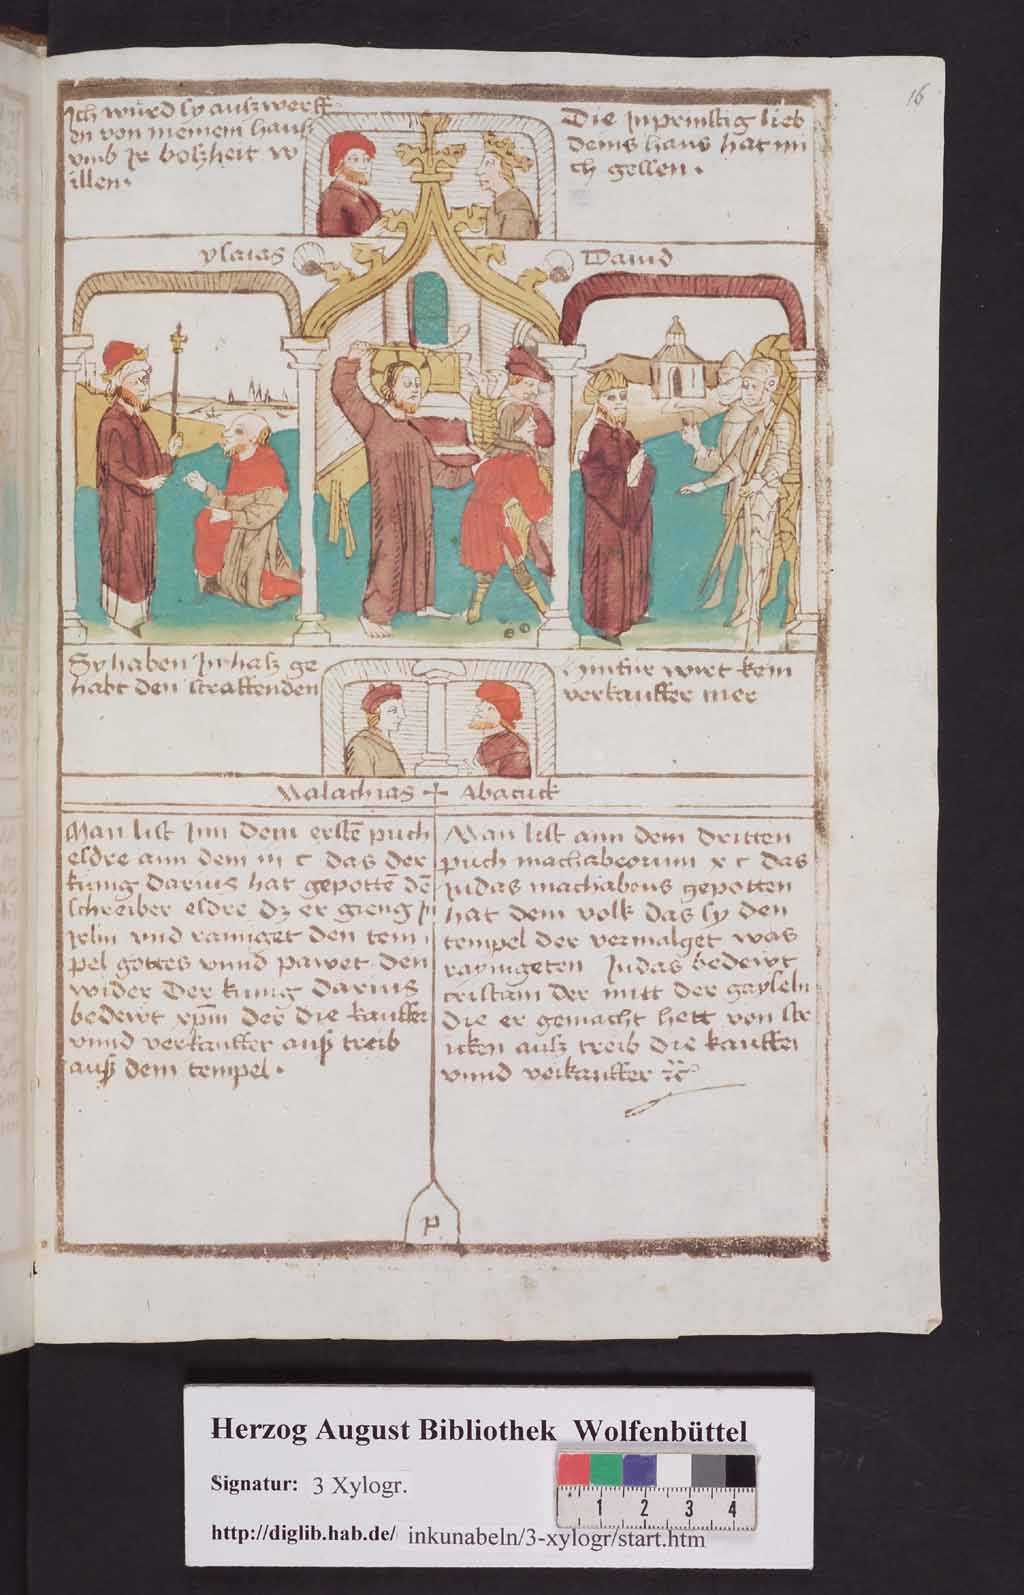 16
Ich würd sy ausz werff
en von meinem hausz
umb Jr boszheit w
illen.
Die Inprinstig lieb
deins haus hat mi
ch gessen.
ysaias
Dauid
Sy haben In hasz ge
habt den straffenden
hinfür wirt kein
verkauffer mer
Malachias + Abacuck
Man list Inn dem erstē puch
esdre ann dem III c das der
kunig darius hat gepottē dē
schreiber esdre dz er gieng In
Jrlm vnd rainiget den tem
pel gottes vnnd pawet den
wider Der kunig darius
bedewt xpm̄ der die kauffer
vnnd verkauffer ausz treib
ausz dem tempel.
Man list ann dem dritten
puch machabeorum x c das
Judas machabeus gepotten
hat dem volk das sy den
tempel der vermalget was
rayingeten Judas bedewt
cristam der mitt der gayseln
die er gemacht hett von str
icken ausz treib die kauffer
vnnd verkauffer ꝛc
p
Herzog August Bibliothek Wolfenbüttel
Signatur: 3 Xylogr.
http://diglib.hab.de/ inkunabeln/3-xylogr/start.htm
1 2 3 4